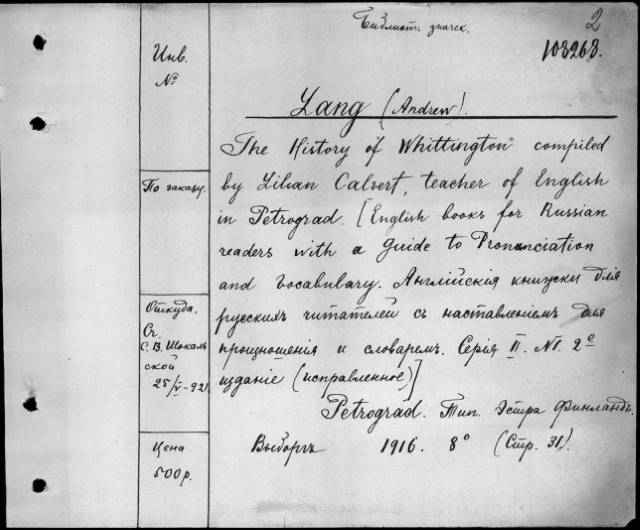 Библиотч. значек.
2
108268.
Инв.
№
Lang (Andrew).
The History of Whittington" compiled
by Lilian Calvert, teacher of English
in Petrograd. [English books for Russian
readers with a guide to Pronunciation
and vocabulary. Англійскія книжски для
русскихъ читателей съ наставленіемъ для
произношенія и словаремъ. Серія II. №1. 2е
изданіе (исправленное)]
Petrograd. Тип. Эстра Финландъ.
Выборгъ 1916. 8° (Стр. 31).
По заказу.
Откуда.
От.
С. В. Шокаль
ской
25/V-921
Цена
500р.